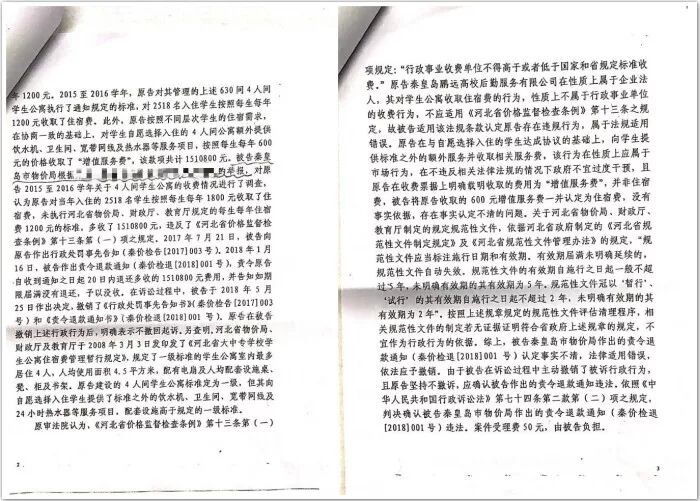 年1200元。2015至2016学年，原告对其管理的上述630间4人间
学生公寓执行了通知规定的标准，对2518名入住学生按照每生每年
1200元收取了住宿费。此外，原告按照不同层次学生的住宿需求，
在协商一致的基础上，对学生自愿选择入住的4人间公寓额外提供
饮水机、卫生间、宽带网线及热水器等服务项目，按照每生每年600
元的价格收取了“增值服务费”，该款项共计1510800元。被告秦皇
岛市物价局根据
的举报，对原
告2015至2016学年关于4人间学生公寓的收费情况进行了调查，
认为原告对当年入住的2518名学生按照每生每年1800元收取了住
宿费，未执行河北省物价局、财政厅、教育厅规定的每生每年住宿
费1200元的标准，多收了1510800元，违反了《河北省价格监督检
查条例》第十三条第（一）项之规定。2017年7月21日，被告向
原告作出行政处罚事先告知（秦价检告[2017]003号）。2018年1月
16日，被告作出责令退款通知（秦价检退[2018]001号），责令原告
自收到通知之日起20日内退还多收的1510800元费用，并告知如期
限届满没有退还，予以没收。在诉讼过程中，被告于2018年5月
25日作出决定，撤销了《行政处罚事先告知书》（秦价检告[2017]003
号）和《责令退款通知书》（秦价检退[2018]001号）。原告在被告
撤销上述行政行为后，明确表示不撤回起诉。另查明，河北省物价局、
财政厅及教育厅于2008年3月3日发印发了《河北省大中专学校学
生公寓住宿费管理暂行规定》，规定了一级标准的学生公寓室内最多
居住4人，人均使用面积4.5平方米，配有电扇及人均配套设施桌、
凳、柜及书架。原告建设的4人间学生公寓标准定为一级，但其向
自愿选择入住学生提供了标准之外的饮水机、卫生间、宽带网线及
24小时热水器等服务项目，配套设施高于规定的一级标准。
原审法院认为，《河北省价格监督检查条例》第十三条第（一）
2
项规定：“行政事业收费单位不得高于或者低于国家和省规定标准收
费。”原告秦皇岛鹏远高校后勤服务有限公司在性质上属于企业法
人，其对学生公寓收取住宿费的行为，性质上不属于行政事业单位
的收费行为，不应适用《河北省价格监督检查条例》第十三条之规
定，故被告适用该法规条款认定原告存在违规行为，属于适用法规
错误。原告在与自愿选择入住的学生达成协议的基础上，向学生提
供标准之外的额外服务并收取相关服务费，该行为在性质上应属于
市场行为，在不违反相关法律法规的情况下政府不宜过度干预，且
原告在收费票据上明确载明收取的费用为“增值服务费”，并非住宿
费，被告将原告收取的600元增值服务费一并认定为住宿费，没有
事实依据，存在事实认定不清的问题。关于河北省物价局、财政厅、
教育厅制定的规定规范性文件，依据河北省政府制定的《河北省规
范性文件制定规定》及《河北省规范性文件管理办法》的规定，“规
范性文件应当标注施行日期和有效期。有效期届满未明确延续的，
规范性文件自动失效。规范性文件的有效期自施行之日起一般不超
过5年，未明确有效期的其有效期为5年，规范性文件冠以‘暂行’、
‘试行’的其有效期自施行之日起不超过2年，未明确有效期的其
有效期为2年”。按照上述规章规定的规范性文件评估清理程序，相
关规范性文件的制定若无证据证明符合省政府上述规章的规定，不
宜作为行政行为的依据。综上，被告秦皇岛市物价局作出的责令退
款通知（秦价检退[2018]001号）认定事实不清，法律适用错误，
依法应予撤销。由于被告在诉讼过程中主动撤销了被诉行政行为，
且原告坚持不撤诉，应确认被告作出的责令退款通知违法。依照《中
华人民共和国行政诉讼法》第七十四条第二款第（二）项之规定，
判决确认被告秦皇岛市物价局作出的责令退款通知（秦价检退
[2018]001号）违法。案件受理费50元，由被告负担。
3